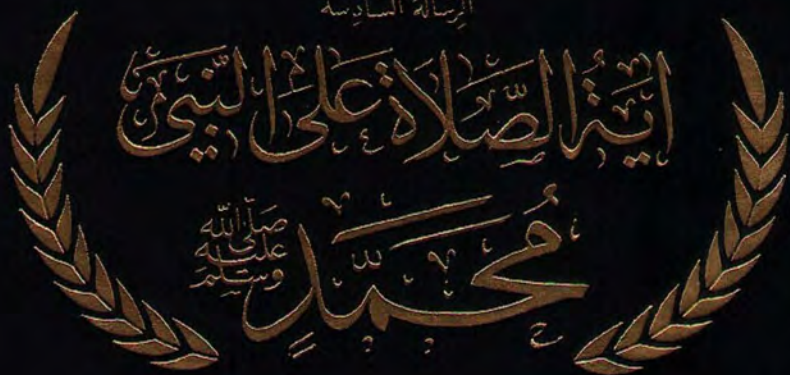 الرسالة السادسة
آيَةُ الصَّلَاةِ عَلَى النَّبِيِّ
مُحَمَّدٍ صَلَّى اللَّهُ عَلَيْهِ وَسَلَّمَ